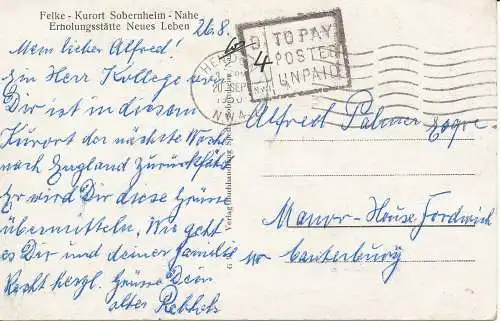 Felke - Kurort Sobernheim - Nahe
Erholungsstätte Neues Leben
26.8.
Mein lieber Alfred!
Ein Herr Kollege von
Dir ist in diesem
Kurort der nächste Woche
nach England zurückfährt
Er wird Dir diese Grüsse
übermitteln, Wie geht
es Dir und deiner Familie
Recht herzl. Grüsse Dein
alter
TO PAY
POSTED
UNPAID
4
20 SEP
NW4
Alfred Palmer Esqre
Manor-House Fordwich
nr Canterbury